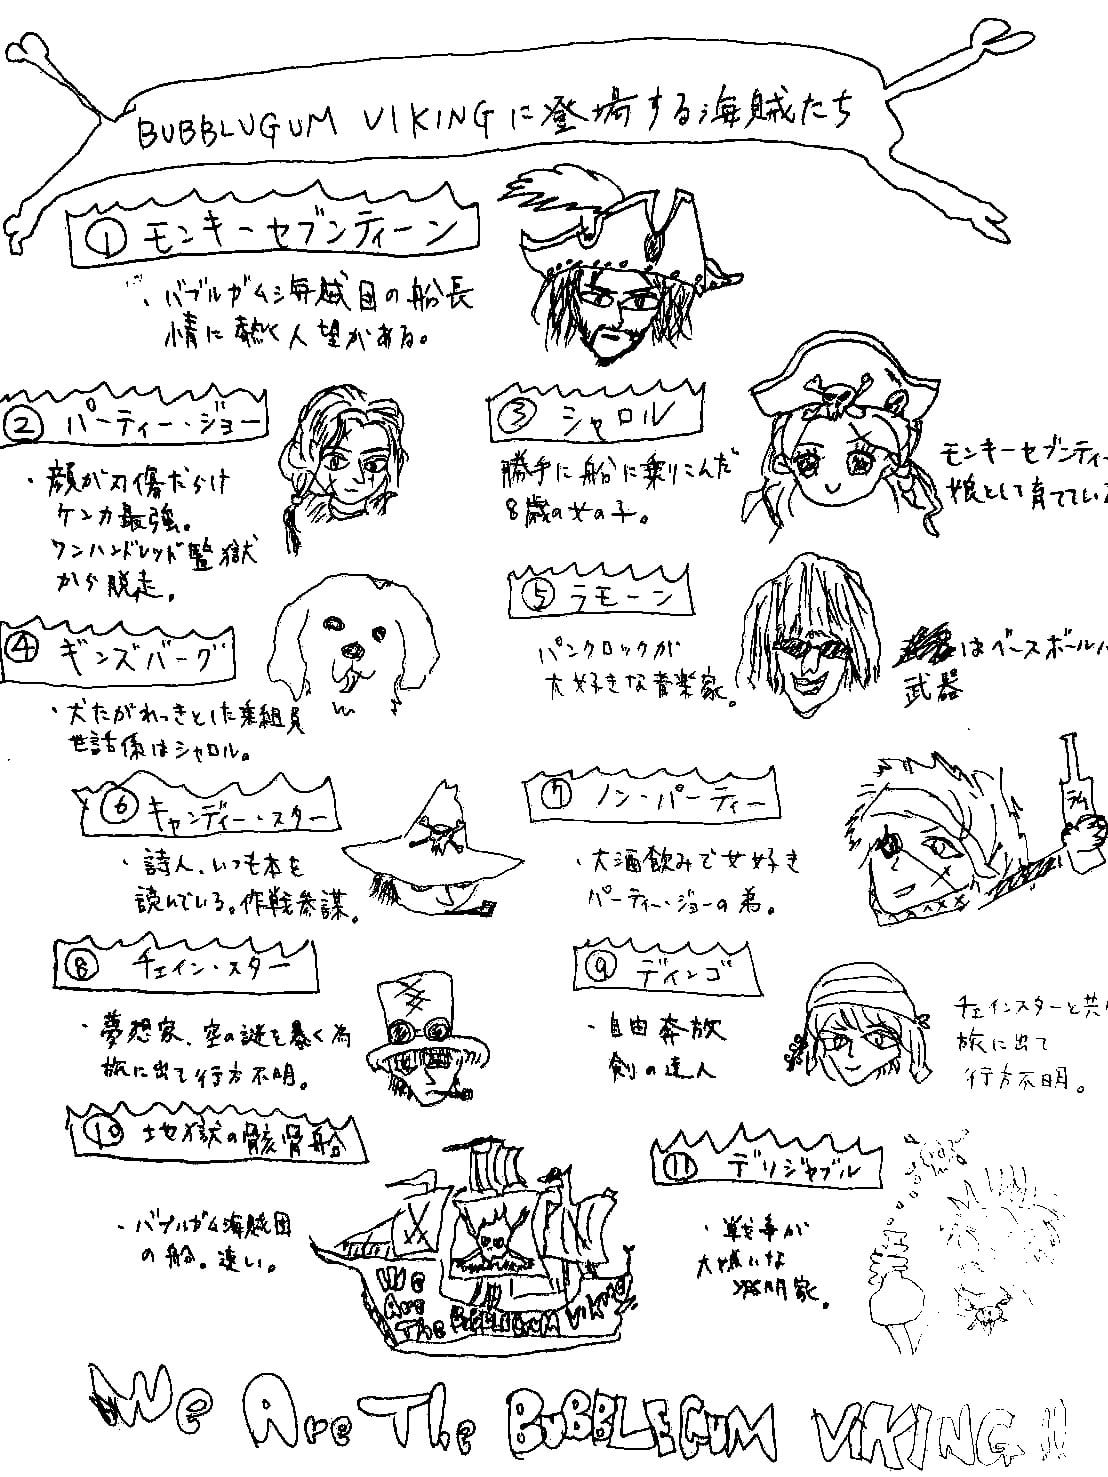 BUBBLUGUM VIKINGに登場する海賊たち
① モンキーセブンティーン
・バブルガム海賊団の船長
情に熱く人望がある。
② パーティー・ジョー
・顔が刃傷だらけ
ケンカ最強。
ワンハンドレッド監獄
から脱走。
③ シャロル
勝手に船に乗りこんだ
8歳の女の子。
モンキーセブンティー
娘として育てている
④ ギンズバーグ
・犬だがれっきとした乗組員
世話係はシャロル。
⑤ ラモーン
パンクロックが
大好きな音楽家。
はベースボール
武器
⑥ キャンディー・スター
・詩人、いつも本を
読んでいる。作戦参謀。
⑦ ノン・パーティー
・大酒飲みで女好き
パーティー・ジョーの弟。
ラム
⑧ チェイン・スター
・夢想家、空の謎を暴く為
旅に出て行方不明。
⑨ ディンゴ
・自由奔放
剣の達人
チェインスターと共
旅に出て
行方不明。
⑩ 地獄の骸骨船
・バブルガム海賊団
の船。速い。
We
Are
The BUBBLEGUM VIKING
⑪ デリジャブル
・戦争が
大嫌いな
発明家。
We Are The BUBBLEGUM VIKING!!